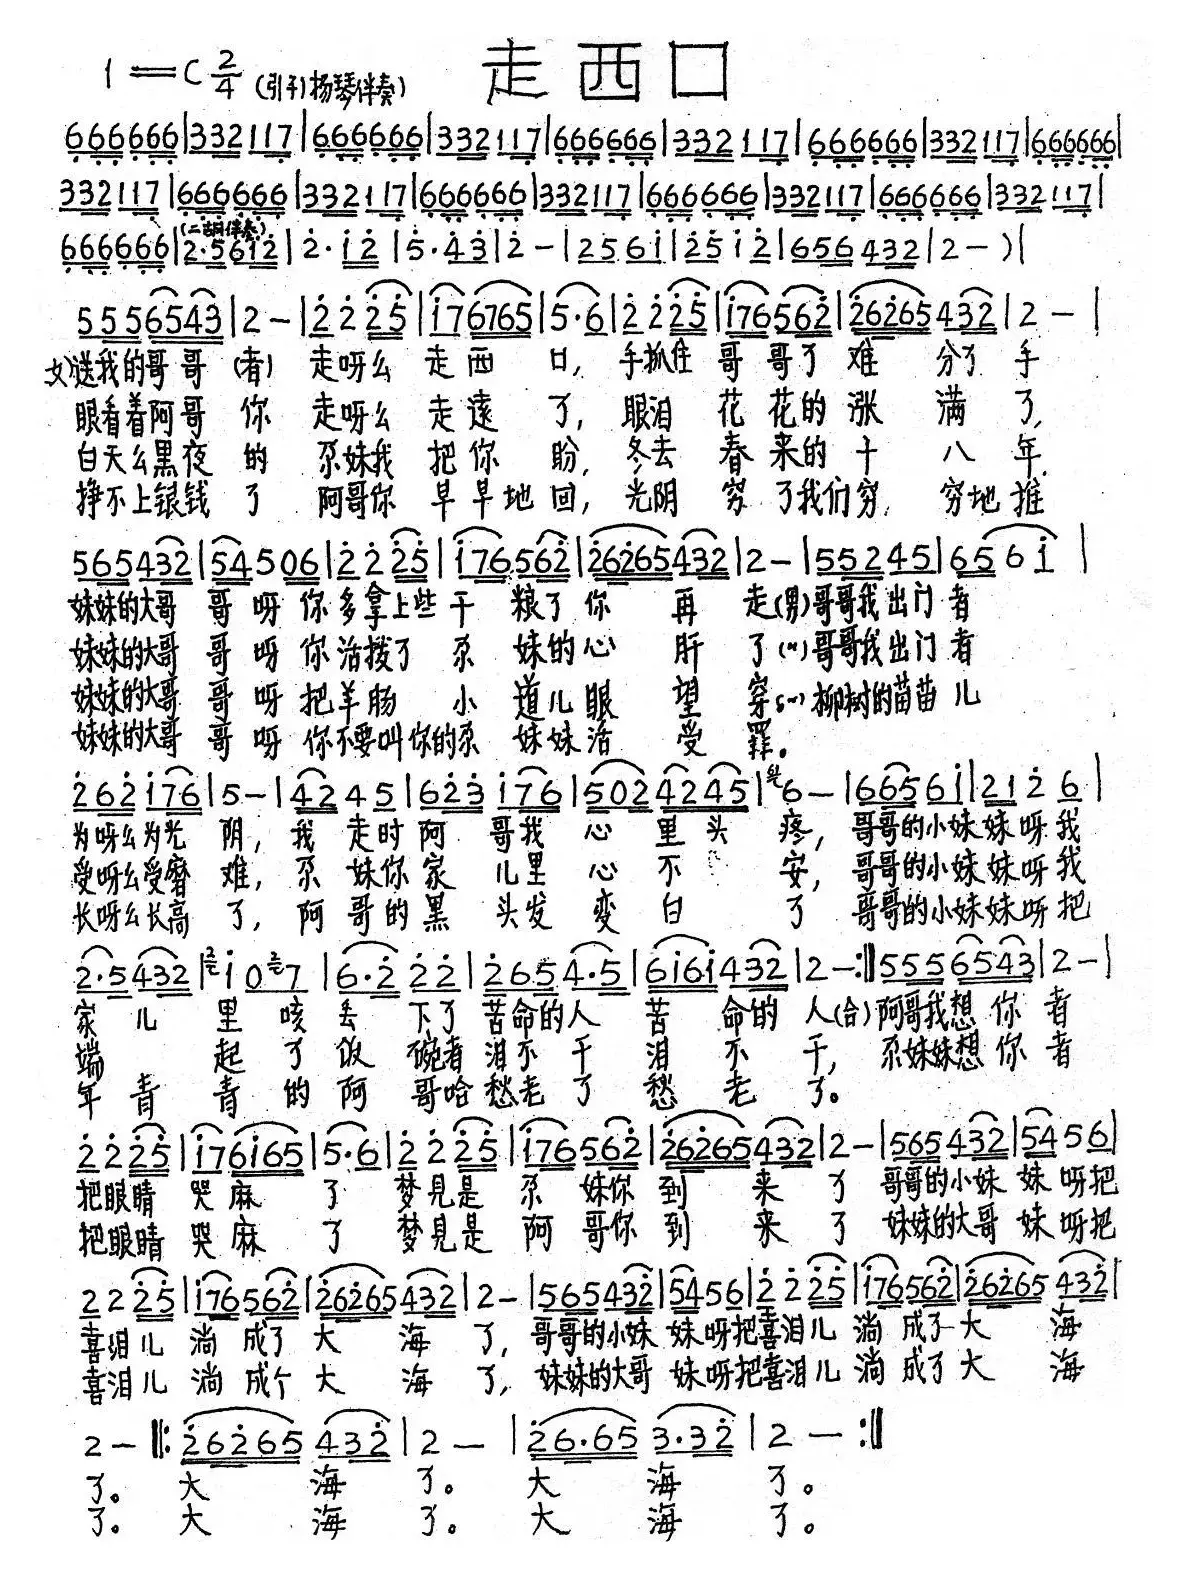 走西口
1=C 2/4 (引子)扬琴伴奏)
666666|332117|666666|332117|666666|332117|666666|332117|666666|
332117|666666|332117|666666|332117|666666|332117|666666|332117|
(二胡伴奏)
666666|2·5612|2·12|5·43|2-|2561|2512|656432|2-)|
5556543|2-|2225|176765|5·6|2225|176562|26265432|2-|
女)送我的哥哥(者)走呀么走西口,手抓住哥哥了难分了手
眼看着阿哥你走呀么走远了,眼泪花花的涨满了,
白天么黑夜的尕妹我把你盼,冬去春来的十八年,
挣不上银钱了阿哥你早早地回,光阴穷了我们穷,穷地推
565432|54506|2225|176562|26265432|2-|55245|6561|
妹妹的大哥哥呀你多拿上些干粮了你再走(男)哥哥我出门者
妹妹的大哥哥呀你活拨了尕妹的心肝了(〃)哥哥我出门者
妹妹的大哥哥呀把羊肠小道儿眼望穿(〃)柳树的苗苗儿
妹妹的大哥哥呀你不要叫你的尕妹妹活受罪。
262176|5-|4245|623176|5024245|6-|66561|2126|
为呀么为光阴,我走时阿哥我心里头疼,哥哥的小妹妹呀我
受呀么受磨难,尕妹你家儿里心不安,哥哥的小妹妹呀我
长呀么长高了,阿哥的黑头发变白了哥哥的小妹妹呀把
2·5432|107|6·222|2654·5|6161432|2-:‖5556543|2-|
家儿里咳丢下了苦命的人苦命的人(合)阿哥我想你者
端起了饭碗者泪不干泪不干,尕妹妹想你者
年青青的阿哥哈愁老了愁老了。
2225|176165|5·6|2225|176562|26265432|2-|565432|5456|
把眼睛哭麻了梦見是尕妹你到来了哥哥的小妹妹呀把
把眼睛哭麻了梦見是阿哥你到来了妹妹的大哥妹呀把
2225|176562|26265432|2-|565432|5456|2225|176562|26265432|
喜泪儿淌成了大海了,哥哥的小妹妹呀把喜泪儿淌成了大海
喜泪儿淌成个大海了,妹妹的大哥妹呀把喜泪儿淌成了大海
2-‖:26265432|2-|26·653·32|2-:‖
了。大海了。大海了。
了。大海了。大海了。